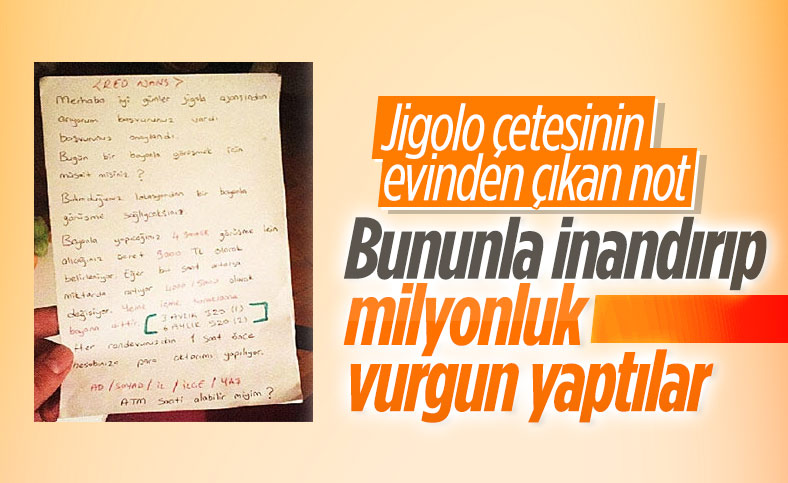 <RED AJANS>
Merhaba iyi günler jigolo ajansından
arıyorum başvurunuz vardı
başvurunuz onaylandı.
Bugün bir bayanla görüşmek için
müsait misiniz ?
Bulunduğunuz lokasyondan bir bayanla
görüşme sağlayacaksınız
Bayanla yapacağınız 4 saatlik görüşme için
alacağınız ücret 3000 TL olarak
belirleniyor. Eğer bu saat artarsa
miktarda artıyor olarak
değişiyor. Yeme içme
bayana aittir. [3 AYLIK 320 (1)
6 AYLIK 520 (2)]
Her randevunuzdan 1 saat önce
hesabınıza para aktarımı yapılıyor.
AD / SOYAD / İL / İLÇE / YAŞ
ATM saati alabilir miyim ?
Jigolo çetesinin
evinden çıkan not
Bununla inandırıp
milyonluk
vurgun yaptılar